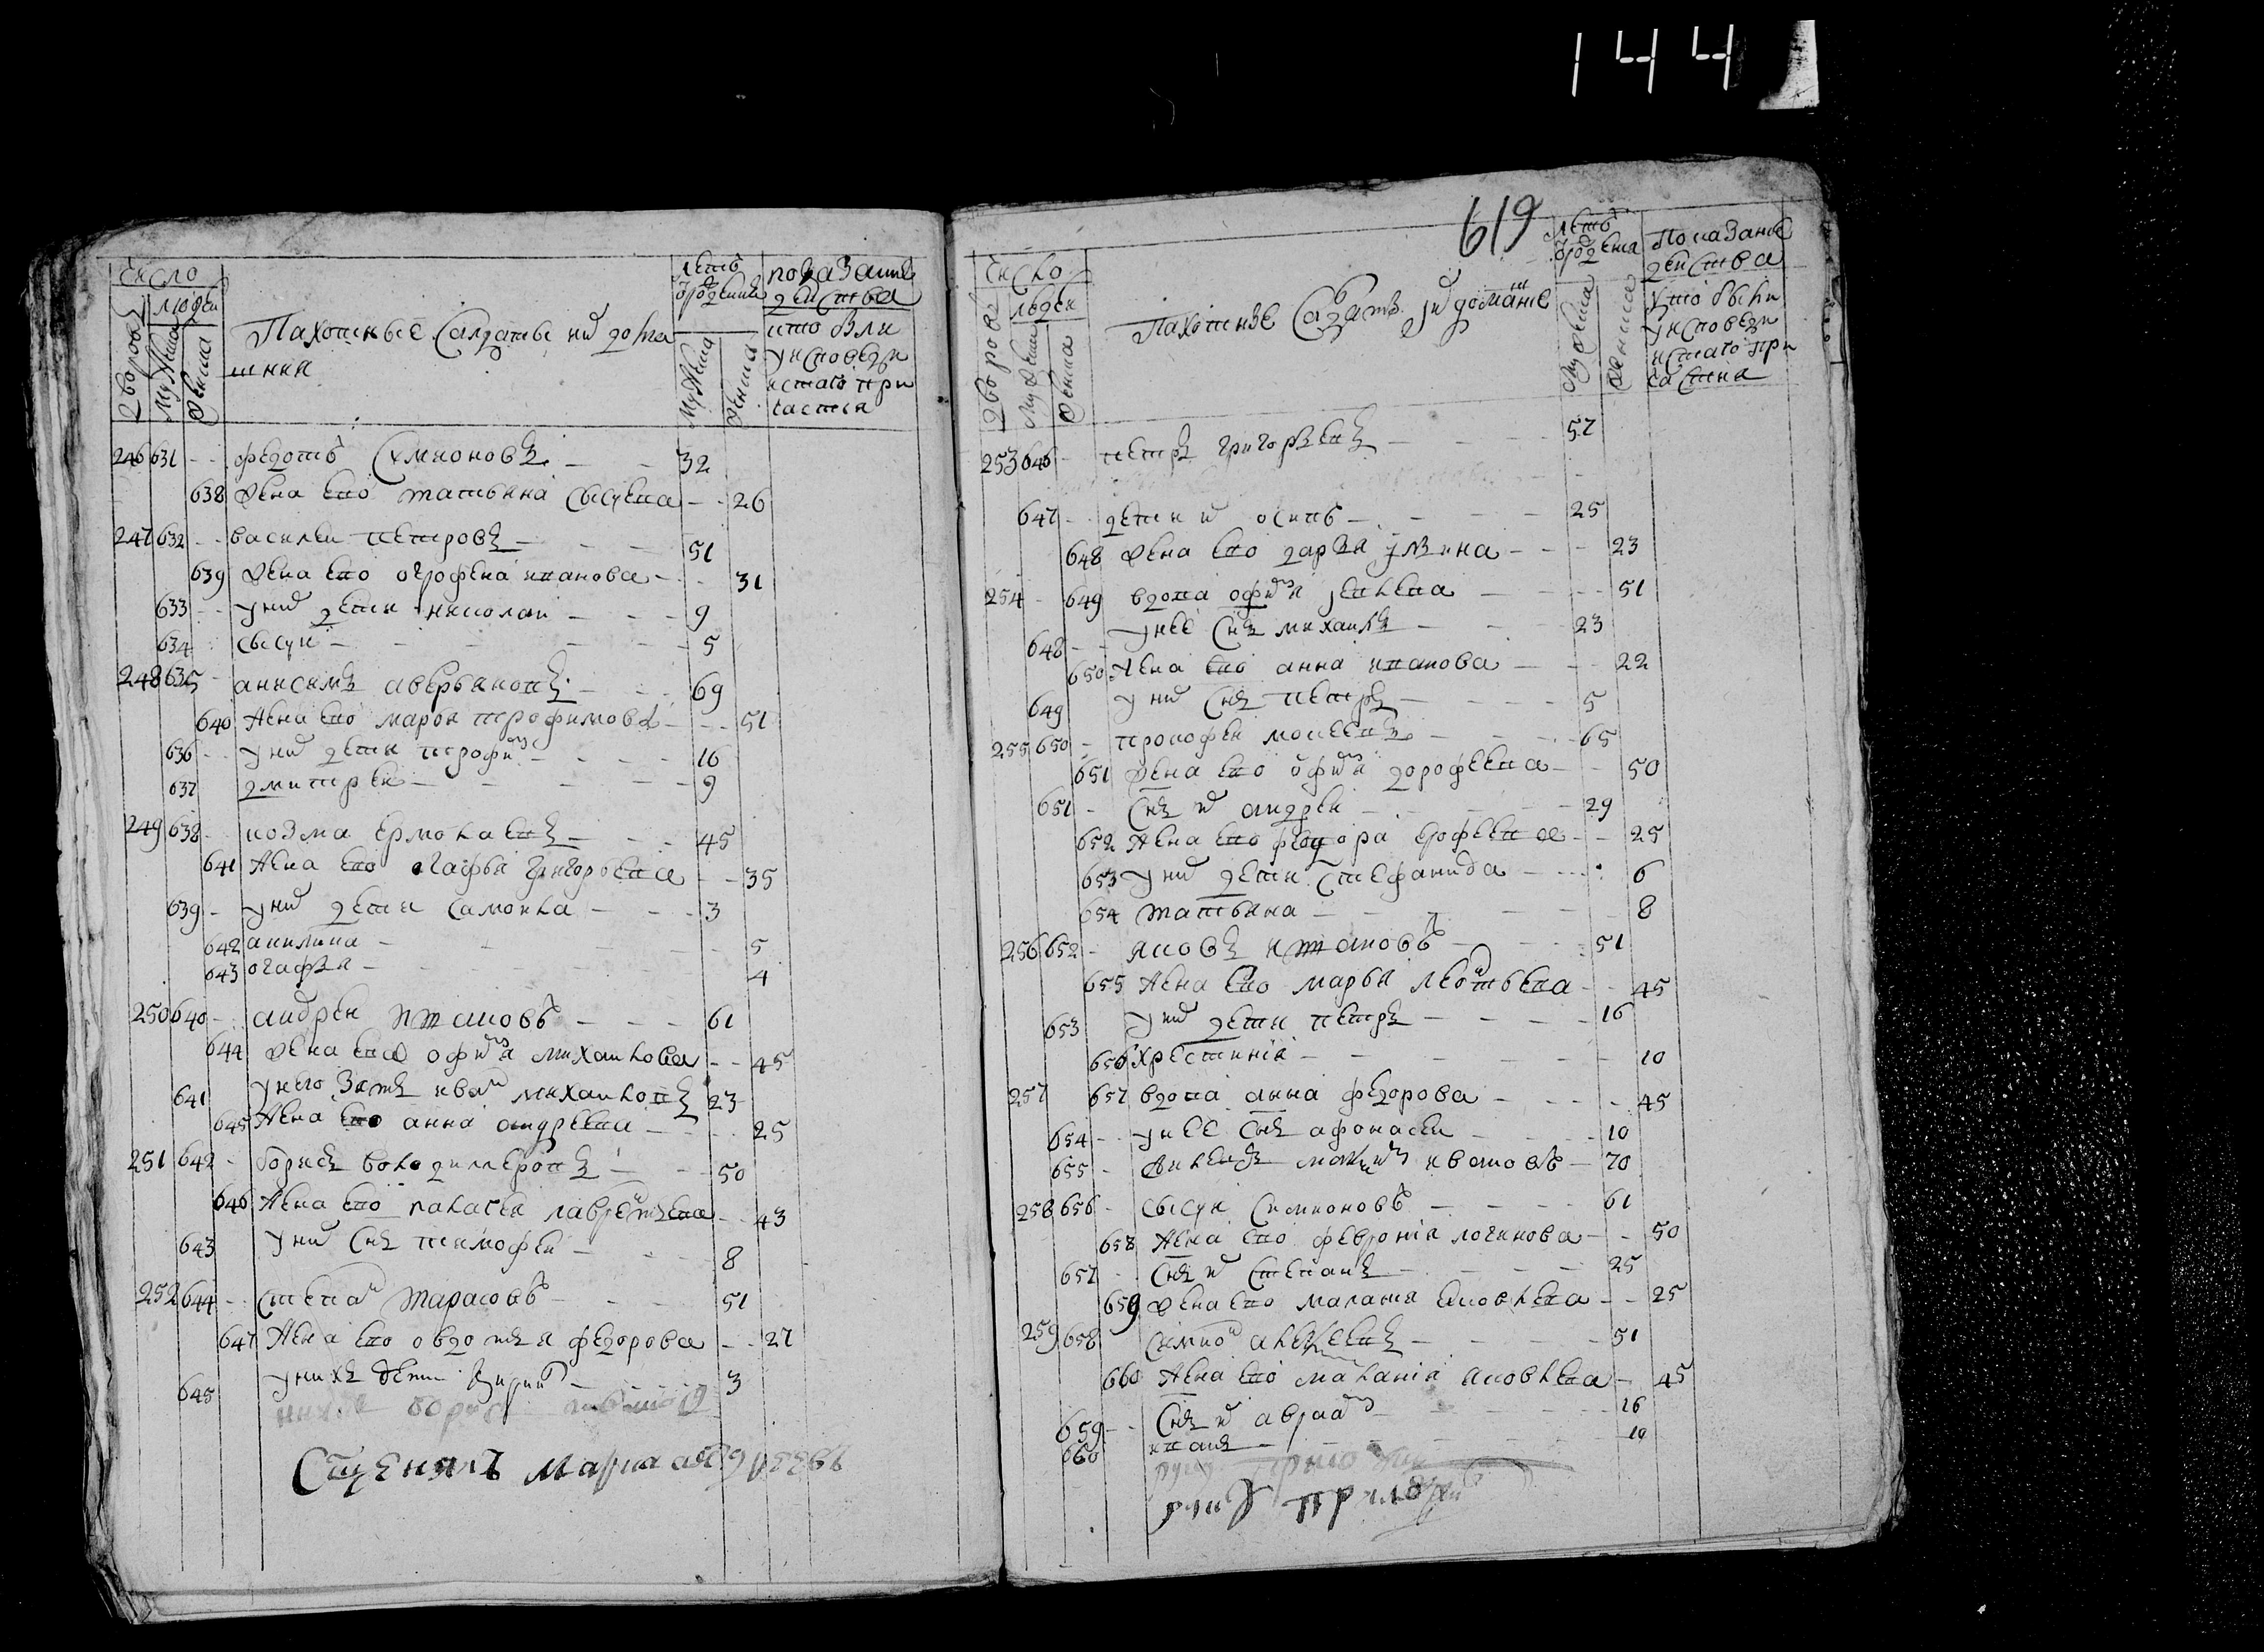 144
число
дворовъ
людей
мужеска
женска
Пахотныие салдаты их домашнии
летъ от рождения
мужеска
женска
показание действа
што были
у исповеди
и стаго при
частия
246 631 федотъ Симионовъ 32
638 жена ево татьяна сысуева 26
247 632 василеи петровъ 51
639 жена ево огрофена иванова 31
633 у них дети николаи 9
634 сысуи 5
248 635 анисимъ аверьяновъ 69
640 жена ево марья трофимова 51
636 у них дети трофим 16
637 дмитреи 9
249 638 козма ермолаевъ 45
641 жена ево огафья григорьева 35
639 у них дети самоила 3
642 акилина 5
643 огафья 4
250 640 андреи ивановъ 61
644 жена ево офимя михаилова 45
641 у него зять иван михаиловъ 23
645 жена ево анна андреева 25
251 642 борисъ володимеровъ 50
646 жена ево палагея лаврентьева 43
643 у них снъ тимофеи 8
252 644 степан тарасовъ 51
647 жена ево овдотья федорова 27
645 у нихъ дети 3
Сщенникъ
619
число
дворовъ
людеи
мужеска
женска
Пахотные салдаты и их домашние
летъ от рождения
мужеска
женска
Показание действа
что были
у исповеди
и стаго при
частия
253 646 петръ григорьевъ 57
647 дети их осипъ 25
648 жена ево дарья 23
254 649 вдова офимя 51
648 у нее снъ михаилъ 23
650 жена ево анна иванова 22
649 у них снъ петръ 5
255 650 прокофеи мосеевъ 65
651 жена ево офимя дорофеева 50
651 снъ их андреи 29
652 жена ево федора ерофеева 25
653 у них дети стефанида 6
654 татьяна 8
256 652 яковъ ивановъ 51
655 жена ево марья леонтьева 45
653 у них дети петръ 16
656 христиния 10
257 657 вдова анна федорова 45
654 у нее снъ афонасеи 10
655 ивановъ 70
258 656 сысуи симионовъ 61
658 жена ево феврония логинова 50
657 снъ их степанъ 25
659 жена ево маланья яковлева 25
259 658 симион алексеевъ 51
660 жена ево малания яковлева 45
659 снъ их авраам 16
660 иванъ 10
руку приложил